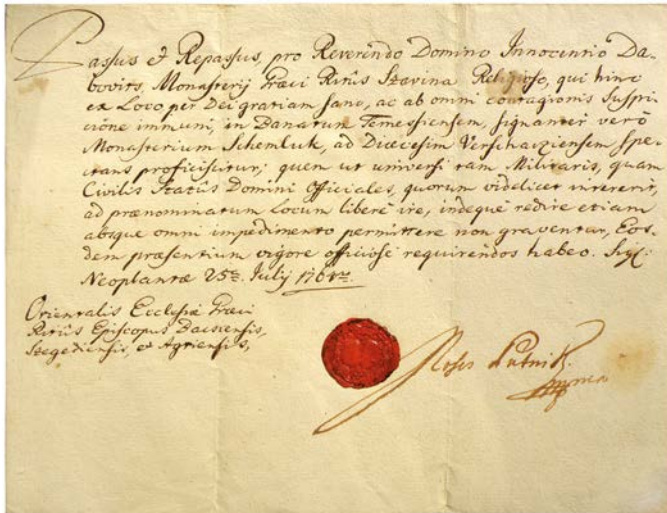 Passus et Repassus, pro Reverendo Domino Innocentio Da-
bovits, Monasterij Græci Ritûs Szavina Religioso, qui hinc
ex Loco per Dei gratiam sano, ac ab omni contagionis suspi-
cione immuni, in Banatum Temessiensem, signanter verò
Monasterium Schemluk, ad Diœcesim Verschaziensem spe-
ctans proficiscitur; quem ut universi tam Militaris, quam
Civilis Statûs Domini Officiales, quorum videlicet intererit,
ad prænominatum Locum liberè ire, indequè redire etiam
absque omni impedimento permittere non graventur, Eos-
dem præsentium vigore officiose requirendos habeo. Sig:
Neoplantæ 25æ July
Orientalis Ecclesiæ Græci
Ritûs Episcopus Bacsiensis,
Szegediensis, et Agriensis,
Moses Putnik